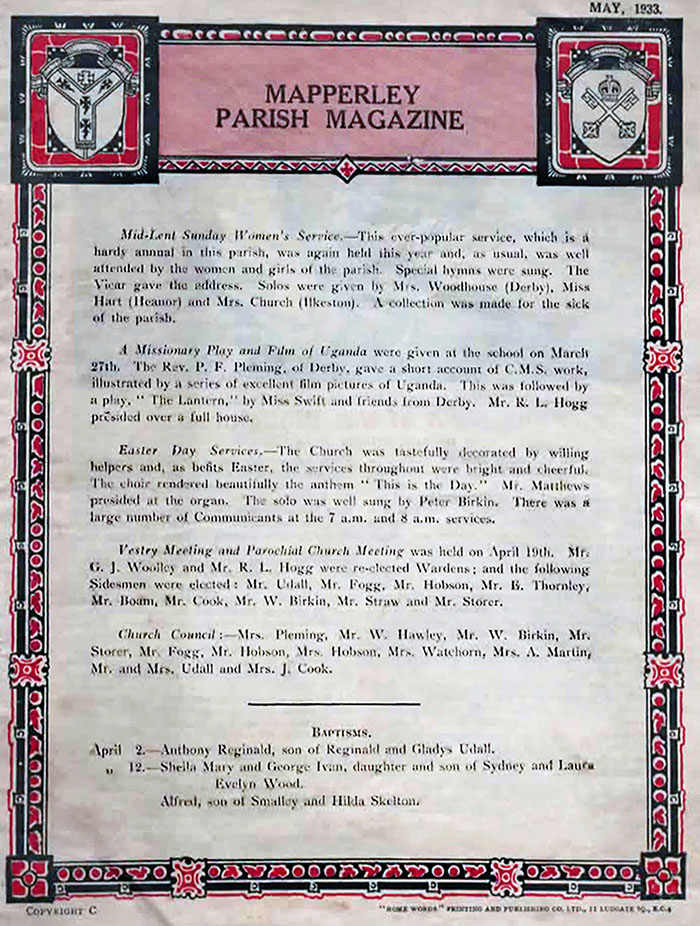 MAY, 1933.
MAPPERLEY
PARISH MAGAZINE
Mid-Lent Sunday Women's Service.—This ever-popular service, which is a
hardy annual in this parish, was again held this year and, as usual, was well
attended by the women and girls of the parish. Special hymns were sung. The
Vicar gave the address. Solos were given by Mrs. Woodhouse (Derby), Miss
Hart (Heanor) and Mrs. Church (Ilkeston). A collection was made for the sick
of the parish.
A Missionary Play and Film of Uganda were given at the school on March
27th. The Rev. P. F. Pleming, of Derby, gave a short account of C.M.S. work,
illustrated by a series of excellent film pictures of Uganda. This was followed by
a play, " The Lantern," by Miss Swift and friends from Derby. Mr. R. L. Hogg
presided over a full house.
Easter Day Services.—The Church was tastefully decorated by willing
helpers and, as befits Easter, the services throughout were bright and cheerful.
The choir rendered beautifully the anthem " This is the Day." Mr. Matthews
presided at the organ. The solo was well sung by Peter Birkin. There was a
large number of Communicants at the 7 a.m. and 8 a.m. services.
Vestry Meeting and Parochial Church Meeting was held on April 19th. Mr.
G. J. Woolley and Mr. R. L. Hogg were re-elected Wardens; and the following
Sidesmen were elected: Mr. Udall, Mr. Fogg, Mr. Hobson, Mr. B. Thornley,
Mr. Boam, Mr. Cook, Mr. W. Birkin, Mr. Straw and Mr. Storer.
Church Council:—Mrs. Pleming, Mr. W. Hawley, Mr. W. Birkin, Mr.
Storer, Mr. Fogg, Mr. Hobson, Mrs. Hobson, Mrs. Watchorn, Mrs. A. Martin,
Mr. and Mrs. Udall and Mrs. J. Cook.
BAPTISMS.
April 2.—Anthony Reginald, son of Reginald and Gladys Udall.
„ 12.—Sheila Mary and George Ivan, daughter and son of Sydney and Laura
Evelyn Wood.
Alfred, son of Smalley and Hilda Skelton.
COPYRIGHT C
"HOME WORDS" PRINTING AND PUBLISHING CO. LTD., 11 LUDGATE SQ., E.C.4